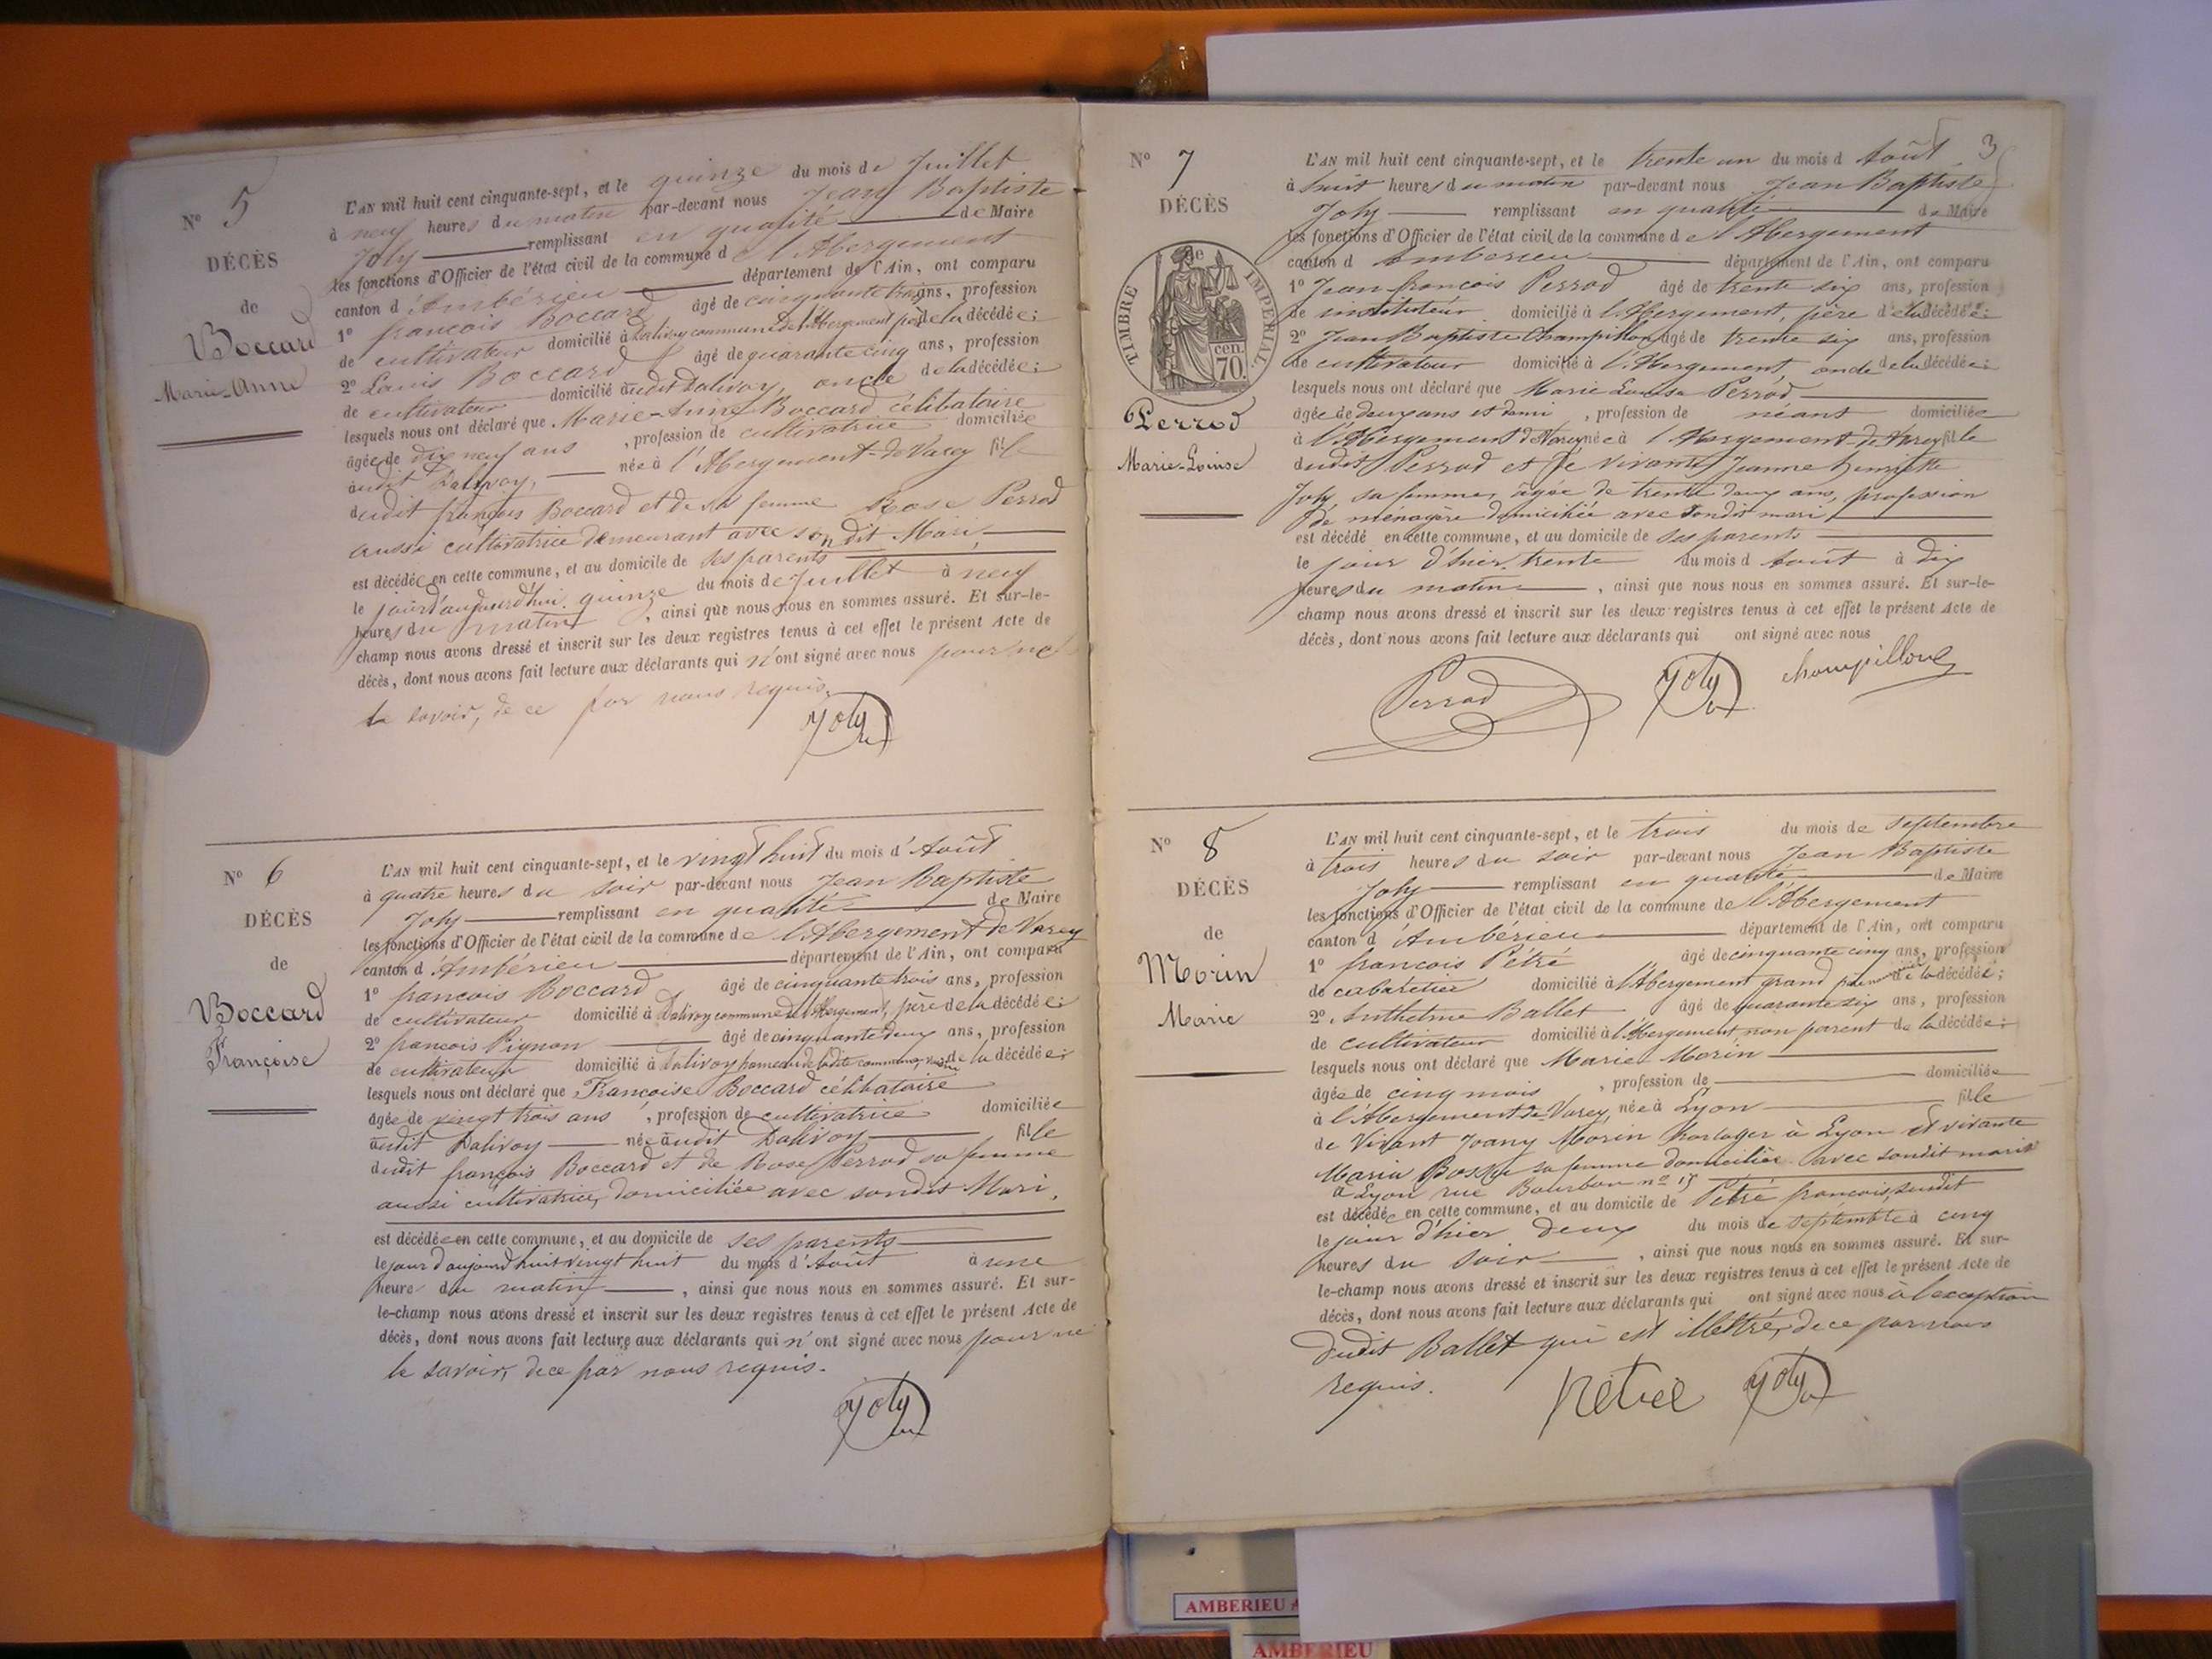 N° 5
DÉCÈS
de
Boccard
Marie-Anne
L'AN mil huit cent cinquante-sept, et le quinze du mois de Juillet
à neuf heures du matin par-devant nous Jean Baptiste
Joly remplissant en qualité de Maire
les fonctions d'Officier de l'état civil de la commune de l'Abergement
canton d'Ambérieu département de l'Ain, ont comparu
1° françois Boccard âgé de cinquante trois ans, profession
de cultivateur domicilié à Dalivoy commune de l'Abergement père de la décédée;
2° Louis Boccard âgé de quarante cinq ans, profession
de cultivateur domicilié audit Dalivoy, oncle de la décédée;
lesquels nous ont déclaré que Marie-Anne Boccard célibataire
âgée de dix neuf ans, profession de cultivatrice domiciliée
audit Dalivoy, née à l'Abergement-de Varey fil
dudit françois Boccard et de sa femme Rose Perrod
aussi cultivatrice demeurant avec son dit Mari,
est décédée en cette commune, et au domicile de ses parents
le jour d'aujourd'hui quinze du mois de Juillet à neuf
heures du matin, ainsi que nous nous en sommes assuré. Et sur-le-
champ nous avons dressé et inscrit sur les deux registres tenus à cet effet le présent Acte de
décès, dont nous avons fait lecture aux déclarants qui n'ont signé avec nous pour ne
le savoir, de ce par nous requis.
Joly
N° 6
DÉCÈS
de
Boccard
Françoise
L'AN mil huit cent cinquante-sept, et le vingt huit du mois d'Août
à quatre heures du soir par-devant nous Jean Baptiste
Joly remplissant en qualité de Maire
les fonctions d'Officier de l'état civil de la commune de l'Abergement de Varey
canton d'Ambérieu département de l'Ain, ont comparu
1° françois Boccard âgé de cinquante trois ans, profession
de cultivateur domicilié à Dalivoy commune de l'Abergement, père de la décédée;
2° françois Pignon âgé de cinquante deux ans, profession
de cultivateur domicilié à Dalivoy hameau de ladite commune, voisin de la décédée;
lesquels nous ont déclaré que Françoise Boccard célibataire
âgée de vingt trois ans, profession de cultivatrice domiciliée
audit Dalivoy née audit Dalivoy fille
dudit françois Boccard et de Rose Perrod sa femme
aussi cultivatrice, domiciliée avec sondit Mari,
est décédée en cette commune, et au domicile de ses parents
le jour d'aujourd'huit vingt huit du mois d'Août à une
heure du matin, ainsi que nous nous en sommes assuré. Et sur-
le-champ nous avons dressé et inscrit sur les deux registres tenus à cet effet le présent Acte de
décès, dont nous avons fait lecture aux déclarants qui n'ont signé avec nous pour ne
le savoir, de ce par nous requis.
Joly
3
N° 7
DÉCÈS
de
TIMBRE IMPERIAL
70 cen.
Perrod
Marie-Louise
L'AN mil huit cent cinquante-sept, et le trente un du mois d Août
à huit heures du matin par-devant nous Jean Baptiste
Joly remplissant en qualité de Maire
les fonctions d'Officier de l'état civil de la commune de l'Abergement
canton d Amberieu département de l'Ain, ont comparu
1° Jean françois Perrod âgé de trente six ans, profession
de instituteur domicilié à l'Abergement, père de la décédée;
2° Jean Baptiste Champillon âgé de trente six ans, profession
de cultivateur domicilié à l'Abergement, oncle de la décédée;
lesquels nous ont déclaré que Marie Louise Perrod
âgée de deux ans et demi, profession de néant domiciliée
à l'Abergement de Varey née à l'Abergement-de Varey fille
dudit Perrod et de vivante Jeanne henriette
Joly, sa femme, âgée de trente deux ans, profession
de ménagère domiciliée avec sondit mari
est décédé en cette commune, et au domicile de ses parents
le jour d'hier, trente du mois d Août à dix
heures du matin, ainsi que nous nous en sommes assuré. Et sur-le-
champ nous avons dressé et inscrit sur les deux registres tenus à cet effet le présent Acte de
décès, dont nous avons fait lecture aux déclarants qui ont signé avec nous
Perrod Joly Champillon
N° 8
DÉCÈS
de
Morin
Marie
L'AN mil huit cent cinquante-sept, et le trois du mois de septembre
à trois heures du soir par-devant nous Jean Baptiste
Joly remplissant en qualité de Maire
les fonctions d'Officier de l'état civil de la commune de l'Abergement
canton d'Ambérieu département de l'Ain, ont comparu
1° françois Pétré âgé de cinquante cinq ans, profession
de cabaretier domicilié à l'Abergement grand père de la décédée;
2° Anthelme Ballet âgé de quarante six ans, profession
de cultivateur domicilié à l'Abergement, non parent de la décédée;
lesquels nous ont déclaré que Marie Morin
âgée de cinq mois, profession de domiciliée
à l'Abergement-de-Varey, née à Lyon fille
de Vivant Joany Morin horloger à Lyon et vivante
Maria sa femme domiciliée avec sondit mari
à Lyon rue Bourbon n°
est décédée en cette commune, et au domicile de Pétré françois, susdit
le jour d'hier deux du mois de septembre à cinq
heures du soir, ainsi que nous nous en sommes assuré. Et sur-
le-champ nous avons dressé et inscrit sur les deux registres tenus à cet effet le présent Acte de
décès, dont nous avons fait lecture aux déclarants qui ont signé avec nous à l'exception
dudit Ballet qui est illettré, de ce par nous
requis.
Pétré Joly
AMBERIEU
AMBERIEU